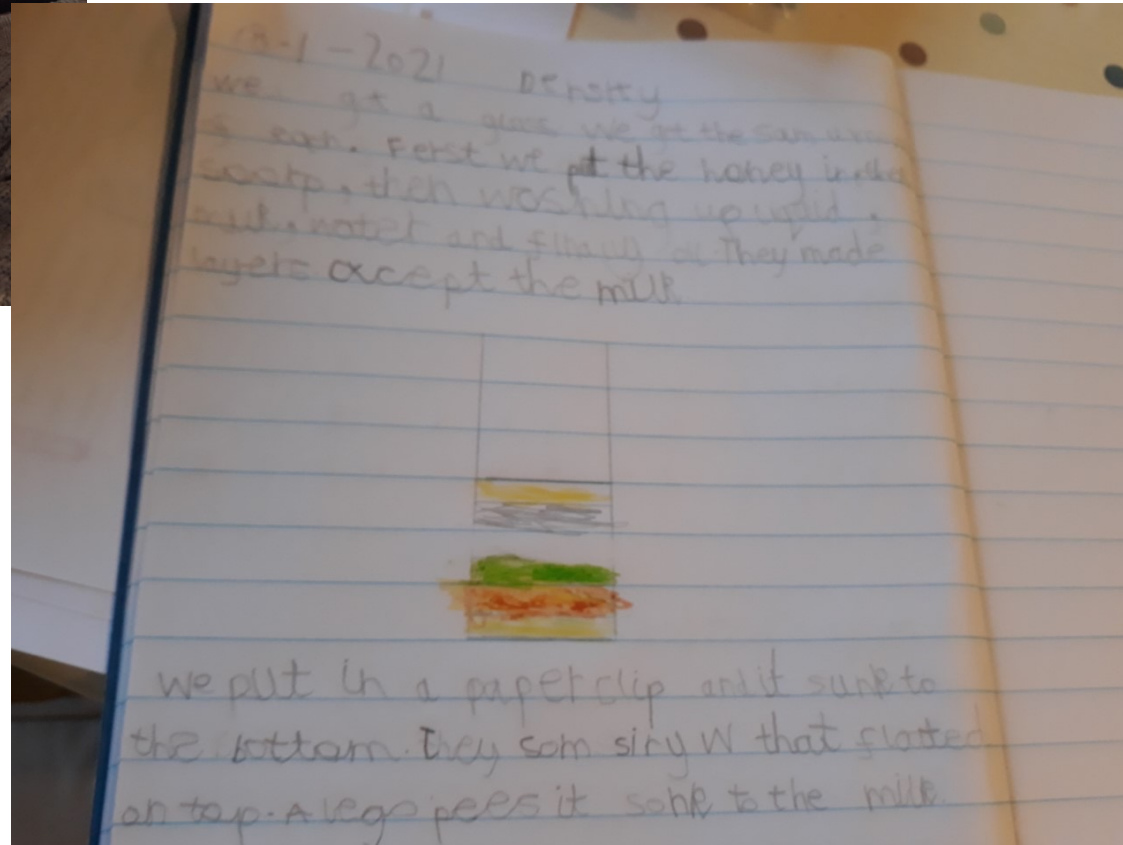 -1-2021 Density
we got a glass we got the sam
of each. Ferst we put the honey in the
soorp, then woshing up liqid,
milk, water and finally oil. They made
layers except the milk
we put in a paper clip and it sunk to
the bottom. They som siry W that flotted
on top. A lego pees it sonk to the milk.